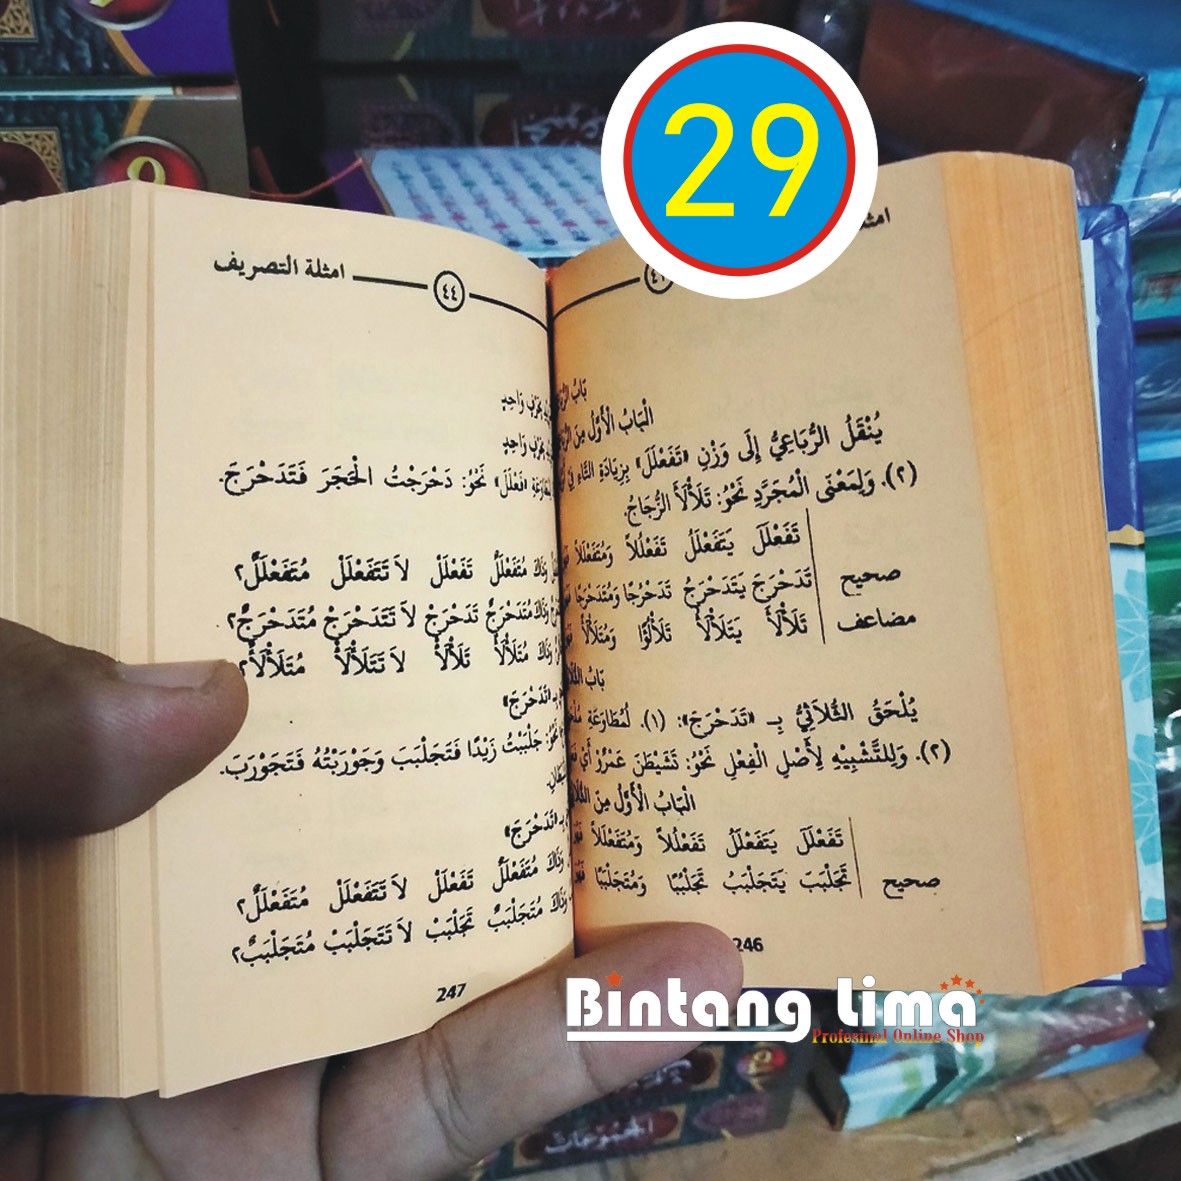 29
امثلة التصريف
٤٤
الْبَابُ الْأَوَّلُ مِنَ
يُنْقَلُ الرُّبَاعِيُّ إِلَى وَزْنِ «تَفَعْلَلَ» بِزِيَادَةِ التَّاءِ فِي
(٢). وَلِمَعْنَى الْمُجَرَّدِ نَحْوُ: تَلَأْلَأَ الزُّجَاجُ.
تَفَعْلَلَ يَتَفَعْلَلُ تَفَعْلُلاً وَمُتَفَعْلَلاً
صحيح تَدَحْرَجَ يَتَدَحْرَجُ تَدَحْرُجًا وَمُتَدَحْرَجًا
مضاعف تَلَأْلَأَ يَتَلَأْلَأُ تَلَأْلُؤًا وَمُتَلَأْلَأً
بَابُ
يُلْحَقُ الثُّلَاثِيُّ بِـ «تَدَحْرَجَ»: (١). لِمُطَاوَعَةِ
(٢). وَلِلتَّشْبِيْهِ لِأَصْلِ الْفِعْلِ نَحْوُ: تَشَيْطَنَ عَمْرٌو أَيْ
الْبَابُ الْأَوَّلُ مِنَ
تَفَعْلَلَ يَتَفَعْلَلُ تَفَعْلُلاً وَمُتَفَعْلَلاً
صحيح تَجَلْبَبَ يَتَجَلْبَبُ تَجَلْبُبًا وَمُتَجَلْبَبًا
246
بِحَرْفٍ وَاحِدٍ
بِحَرْفٍ وَاحِدٍ
«فَعْلَلَ» نَحْوُ: دَحْرَجْتُ الْحَجَرَ فَتَدَحْرَجَ.
وَذَاكَ مُتَفَعْلَلٌ تَفَعْلَلْ لاَ تَتَفَعْلَلْ مُتَفَعْلَلٌ٢
وَذَاكَ مُتَدَحْرَجٌ تَدَحْرَجْ لاَ تَتَدَحْرَجْ مُتَدَحْرَجٌ٢
وَذَاكَ مُتَلَأْلَأٌ تَلَأْلَأْ لاَ تَتَلَأْلَأْ مُتَلَأْلَأٌ٢
بِـ «تَدَحْرَجَ»
نَحْوُ: جَلْبَبْتُ زَيْدًا فَتَجَلْبَبَ وَجَوْرَبْتُهُ فَتَجَوْرَبَ.
بِـ «تَدَحْرَجَ»
وَذَاكَ مُتَفَعْلَلٌ تَفَعْلَلْ لاَ تَتَفَعْلَلْ مُتَفَعْلَلٌ٢
وَذَاكَ مُتَجَلْبَبٌ تَجَلْبَبْ لاَ تَتَجَلْبَبْ مُتَجَلْبَبٌ٢
247
Bintang Lima
Profesinal Online Shop